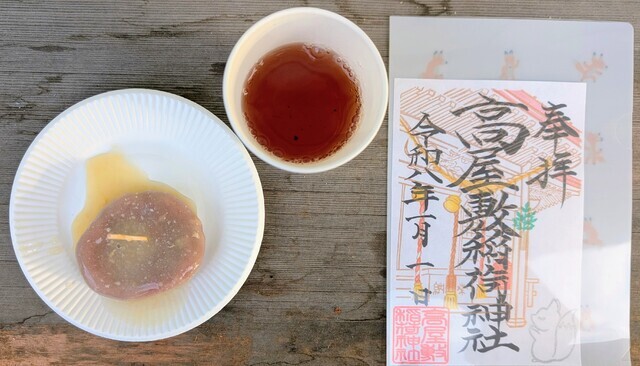 奉拝
高屋敷稲荷神社
令和八年二月一日
高屋敷
稲荷神社